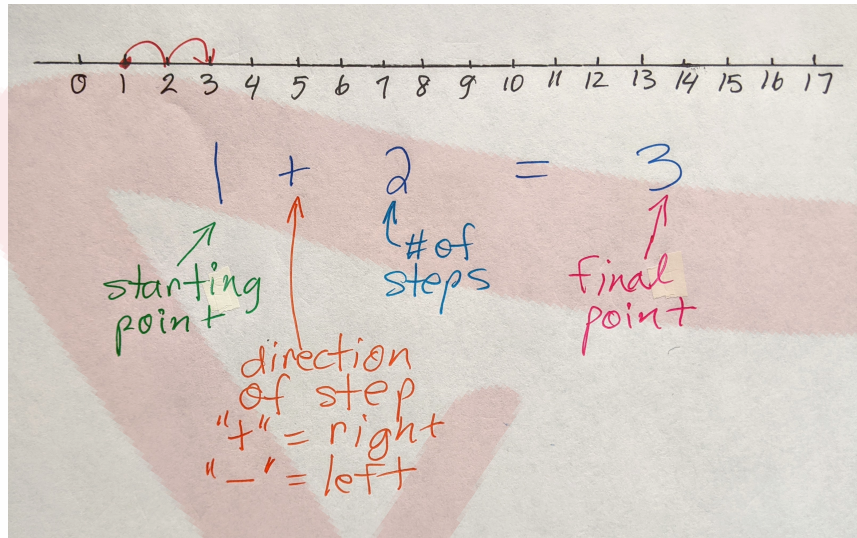 0 1 2 3 4 5 6 7 8 9 10 11 12 13 14 15 16 17
1 + 2 = 3
starting
point
direction
of step
"+" = right
"–" = left
# of
steps
final
point